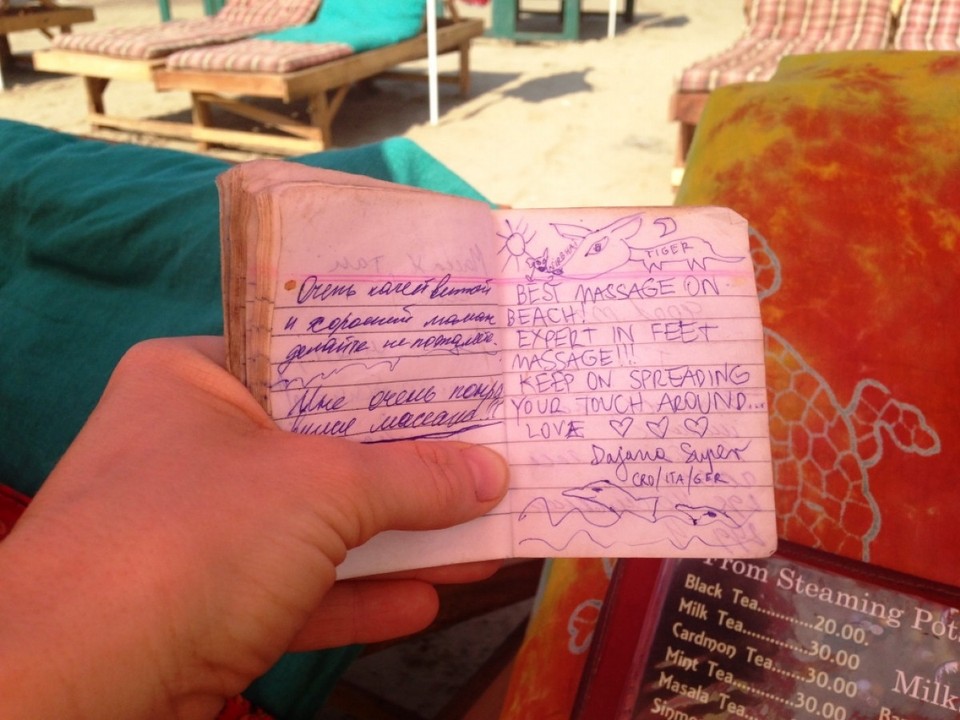 Очень качественный
и хороший массаж
делайте не пожалеете.
Мне очень понра
вился массаж!!!
TIGER
BEST MASSAGE ON
BEACH!
EXPERT IN FEET
MASSAGE!!!
KEEP ON SPREADING
YOUR TOUCH AROUND...
LOVE ♡ ♡ ♡
Dajana Super
CRO/ITA/GER
From Steaming Pot
Black Tea............20.00.
Milk Tea............30.00
Cardmon Tea......30.00
Mint Tea............30.00
Masala Tea
Milk